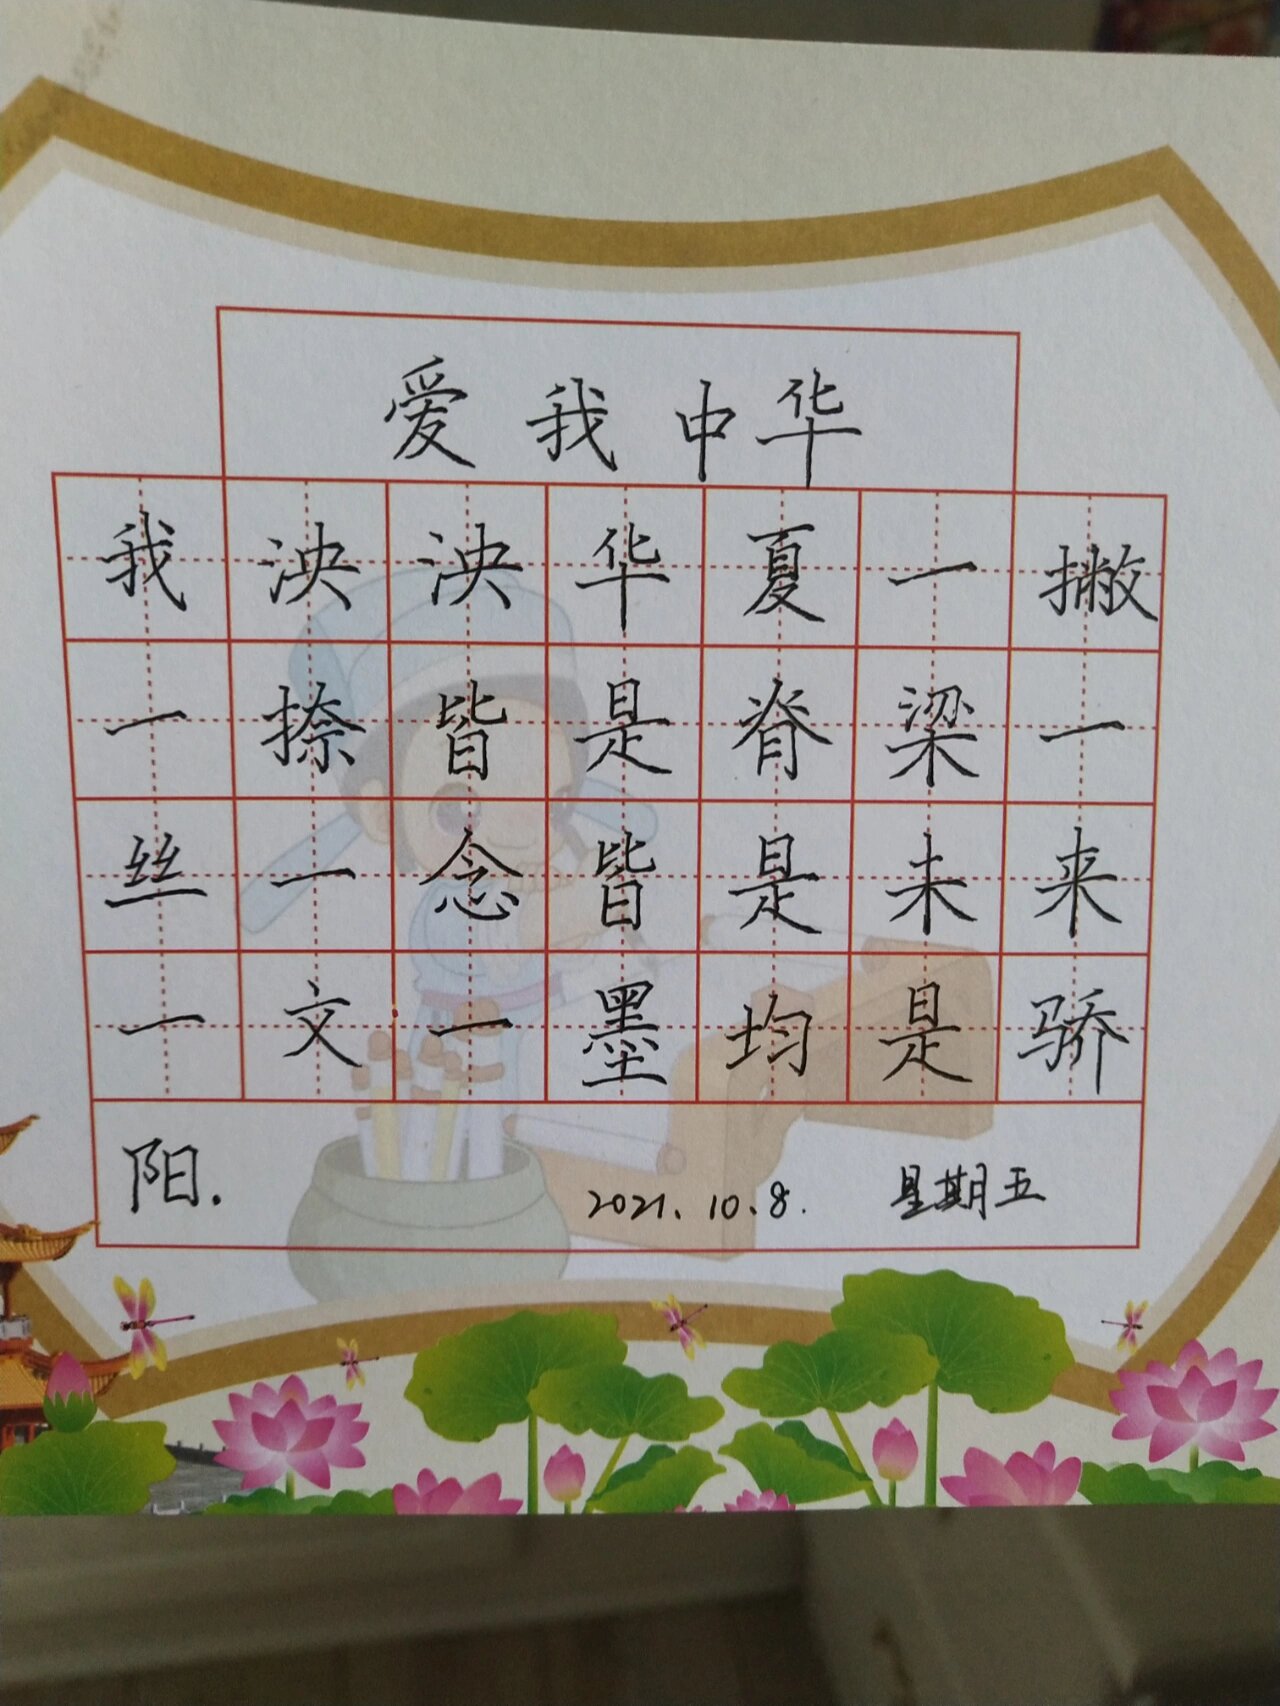 爱我中华
我泱泱华夏一撇
一捺皆是脊梁一
丝一念皆是未来
一文一墨均是骄
阳.
2021.10.8. 星期五